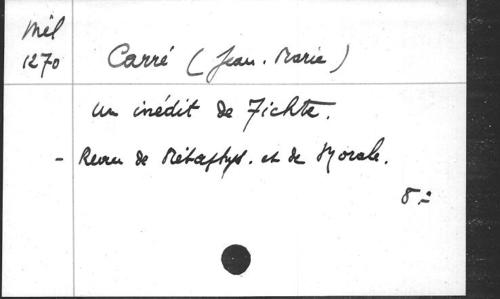 Mél
1270
Carré (Jean-Marie)
un inédit de Fichte.
- Revue de Métaphys. et de Morale.
8:-